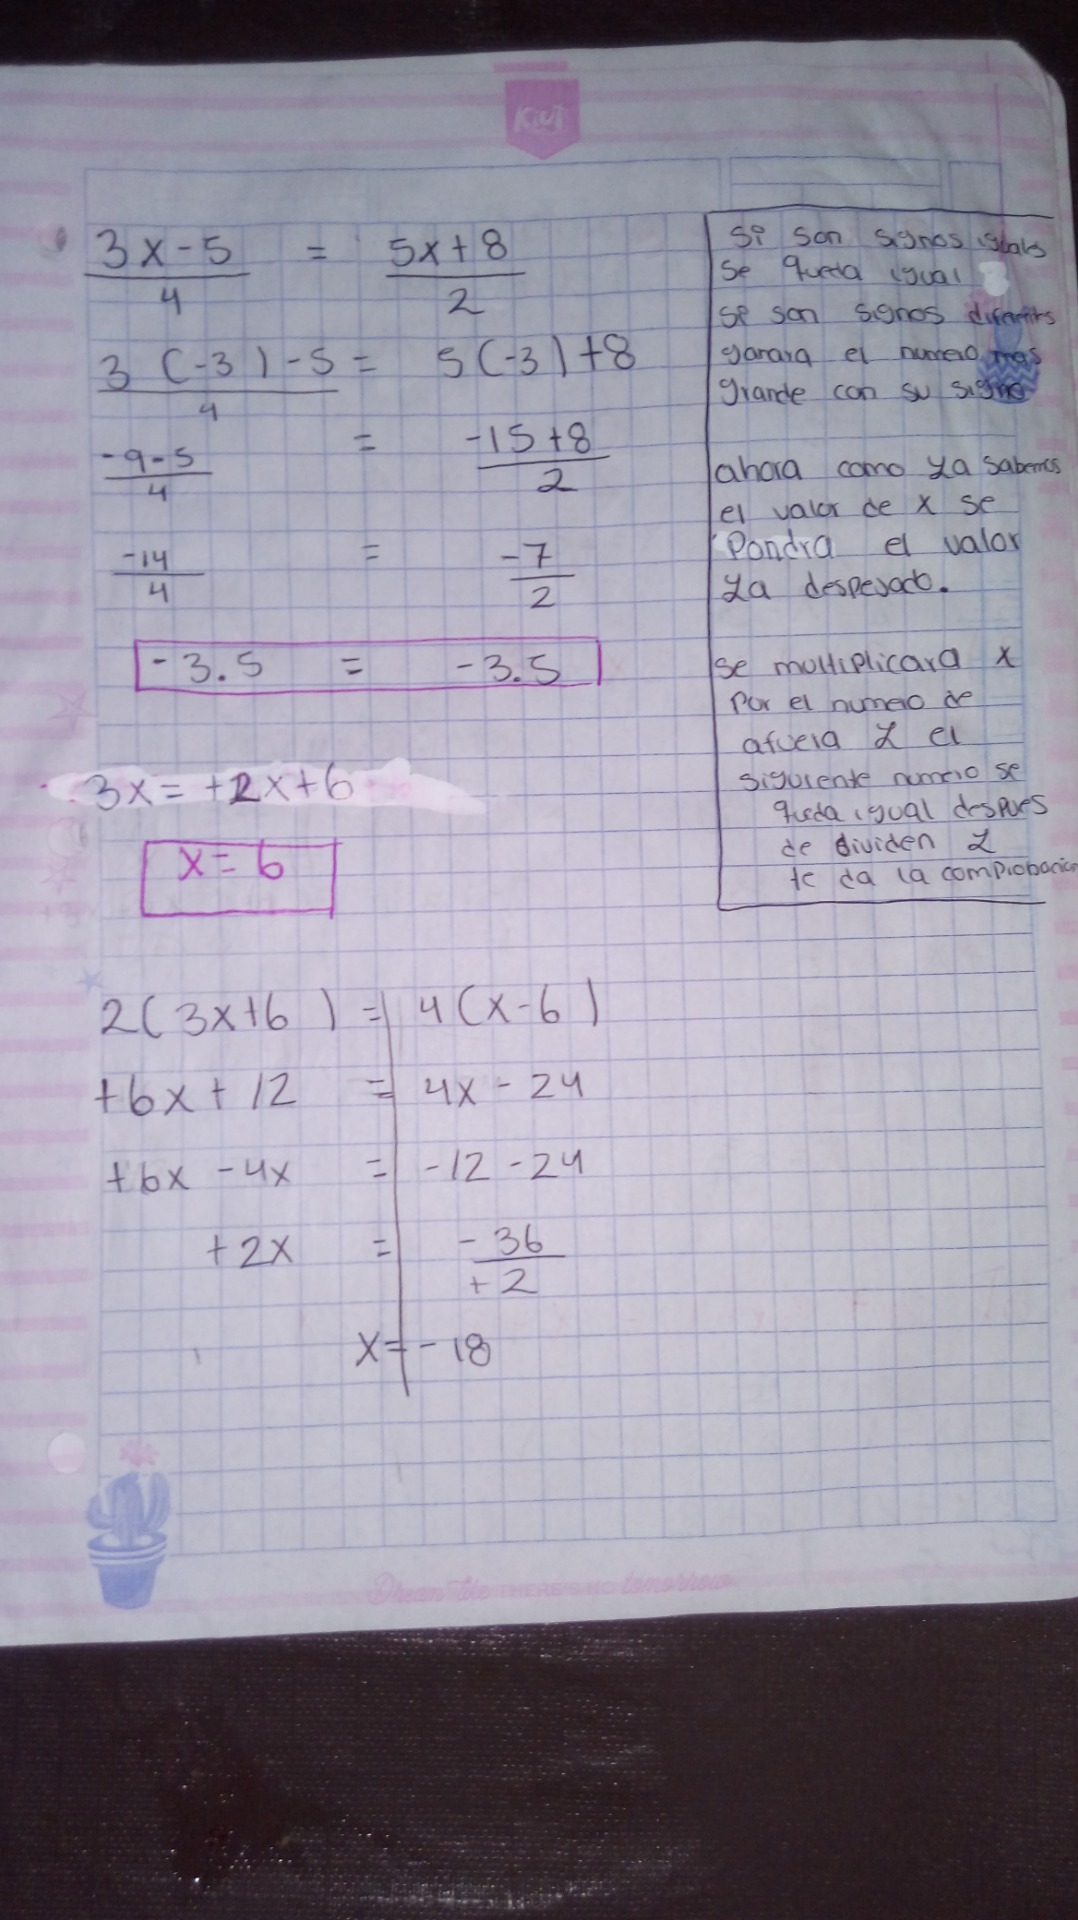 Kiut
3x-5 = 5x+8
4 2
3 (-3) -5 = 5(-3)+8
4
-9-5 = -15+8
4 2
-14 = -7
4 2
-3.5 = -3.5
3x = +2x+6
x = 6
2(3x+6) = 4(x-6)
+6x+12 = 4x-24
+6x -4x = -12-24
+2x = -36
+2
x = -18
Si son signos iguals
se queda igual
si son signos diferents
ganara el numero mas
grande con su signo
ahora como ya sabemos
el valor de x se
Pondra el valor
ya despejado.
se multiplicara x
Por el numero de
afuera y el
siguiente numero se
queda igual despues
de dividen y
te da la comprobacion